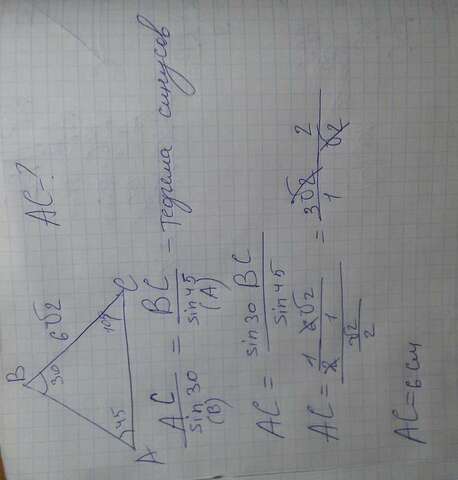 AC-?
B
30
6√2
45
A
C
AC/sin30 (B) = BC/sin45 (A) - теорема синусов
AC = sin30 BC/sin45
AC = (1/2 · 6√2/1)/(√2/2) = 3√2/1 · 2/√2
AC=6 см